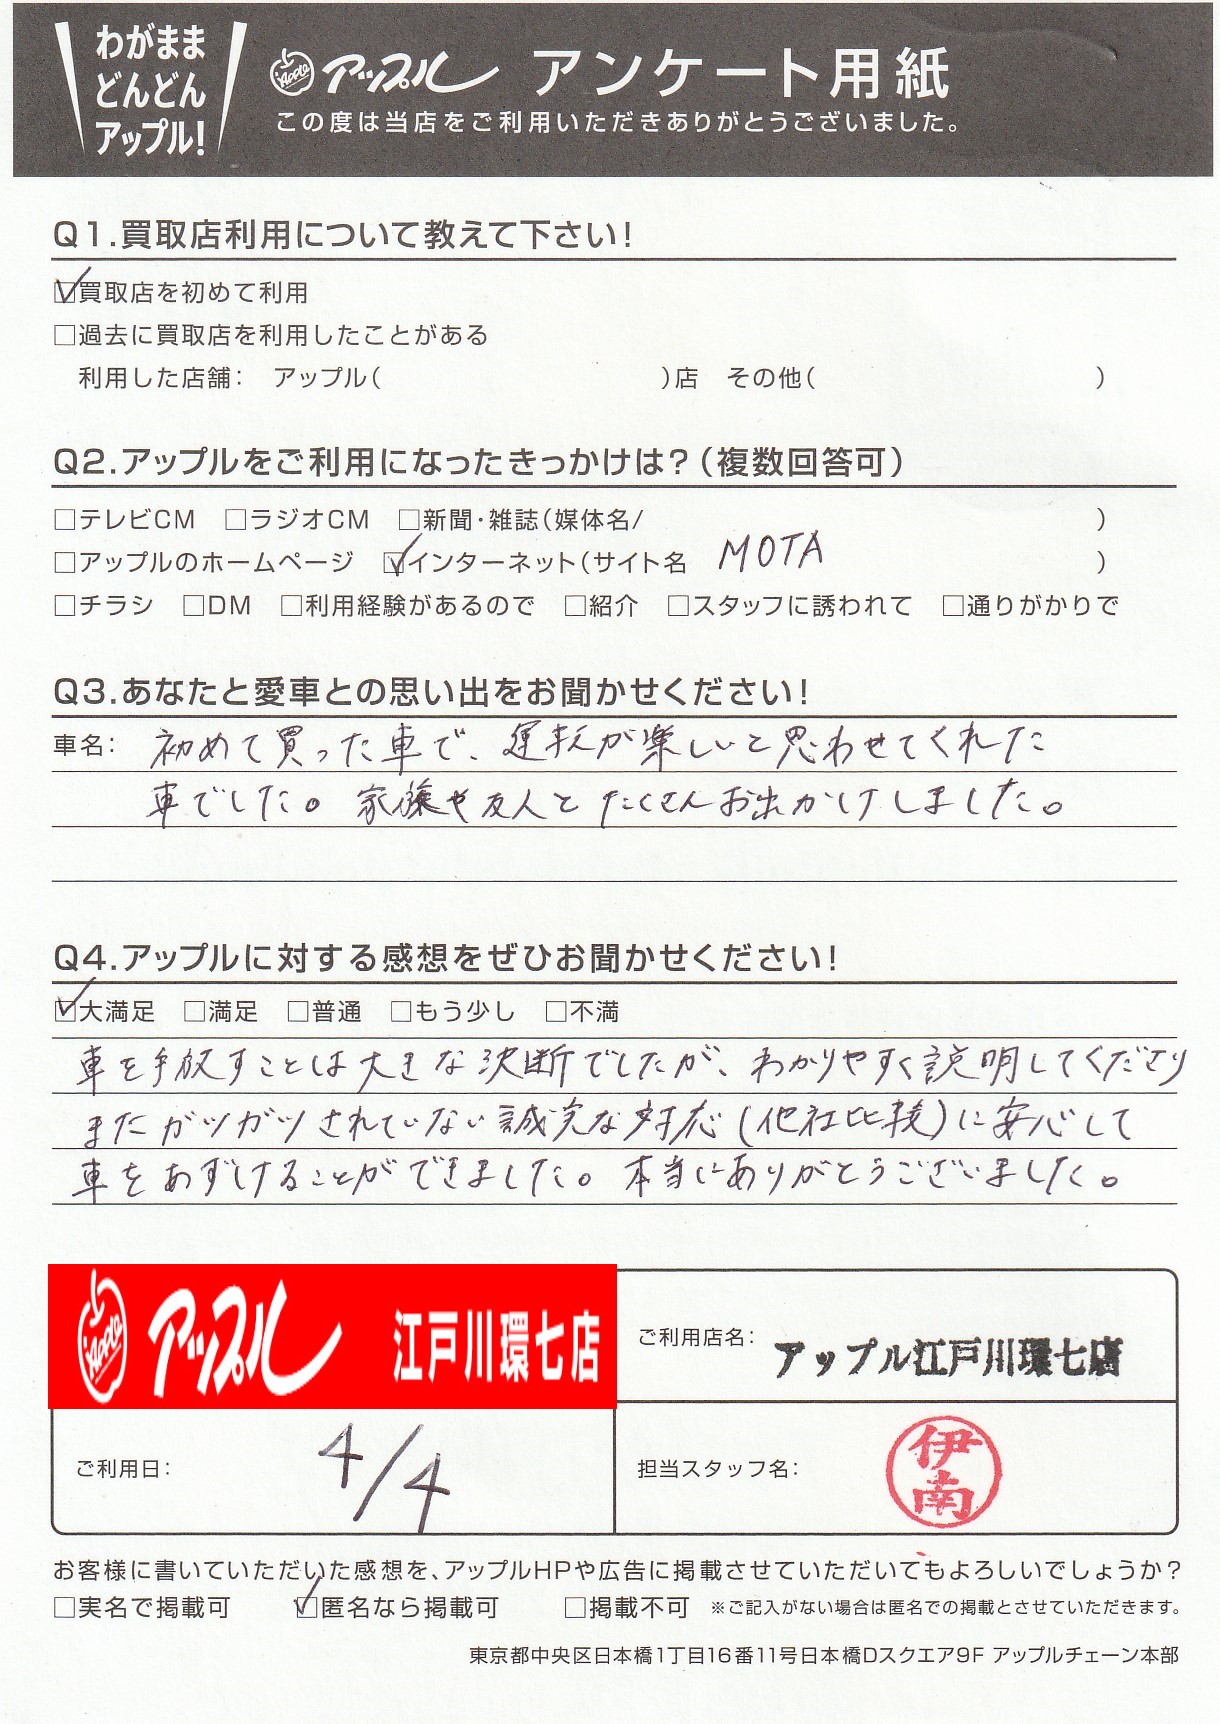 わがまま
どんどん
アップル!
Apple アップル アンケート用紙
この度は当店をご利用いただきありがとうございました。
Q1.買取店利用について教えて下さい!
☑買取店を初めて利用
□過去に買取店を利用したことがある
利用した店舗: アップル( )店 その他( )
Q2.アップルをご利用になったきっかけは?(複数回答可)
□テレビCM □ラジオCM □新聞・雑誌(媒体名/ )
□アップルのホームページ ☑インターネット(サイト名 MOTA )
□チラシ □DM □利用経験があるので □紹介 □スタッフに誘われて □通りがかりで
Q3.あなたと愛車との思い出をお聞かせください!
車名: 初めて買った車で、運転が楽しいと思わせてくれた
車でした。家族や友人とたくさんお出かけしました。
Q4.アップルに対する感想をぜひお聞かせください!
☑大満足 □満足 □普通 □もう少し □不満
車を手放すことは大きな決断でしたが、わかりやすく説明してくださり
またガツガツされていない誠実な対応(他社比較)に安心して
車をあずけることができました。本当にありがとうございました。
Apple アップル 江戸川環七店
ご利用店名: アップル江戸川環七店
ご利用日: 4/4
担当スタッフ名: 伊南
お客様に書いていただいた感想を、アップルHPや広告に掲載させていただいてもよろしいでしょうか?
□実名で掲載可 ☑匿名なら掲載可 □掲載不可 ※ご記入がない場合は匿名での掲載とさせていただきます。
東京都中央区日本橋1丁目16番11号日本橋Dスクエア9F アップルチェーン本部